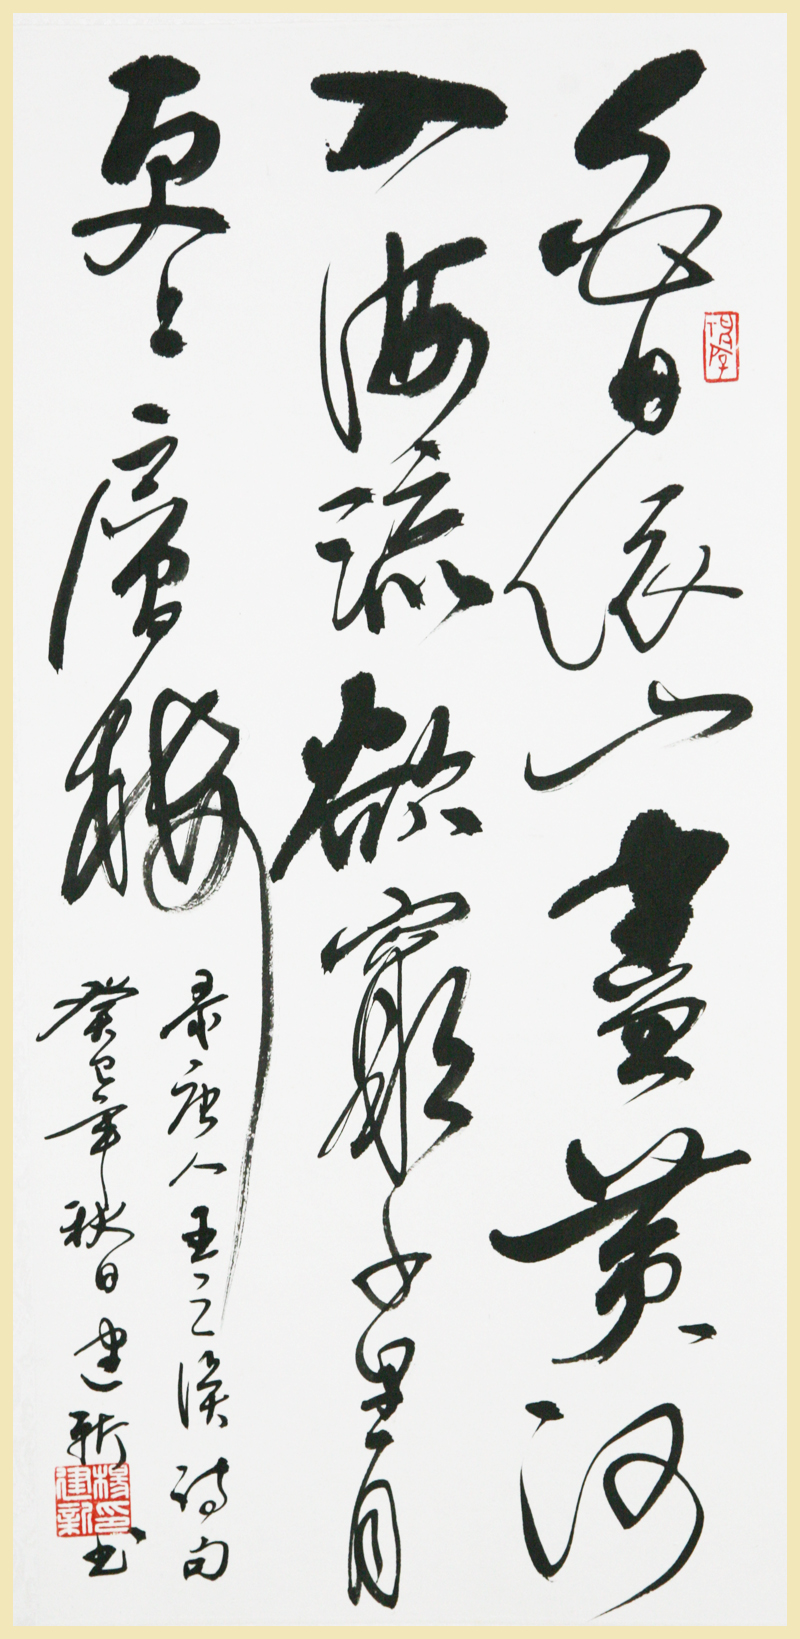 白日依山盡黃河
入海流欲窮千里目
更上一層樓
录唐人王之涣诗句
癸巳年秋日建新书
楊印建新